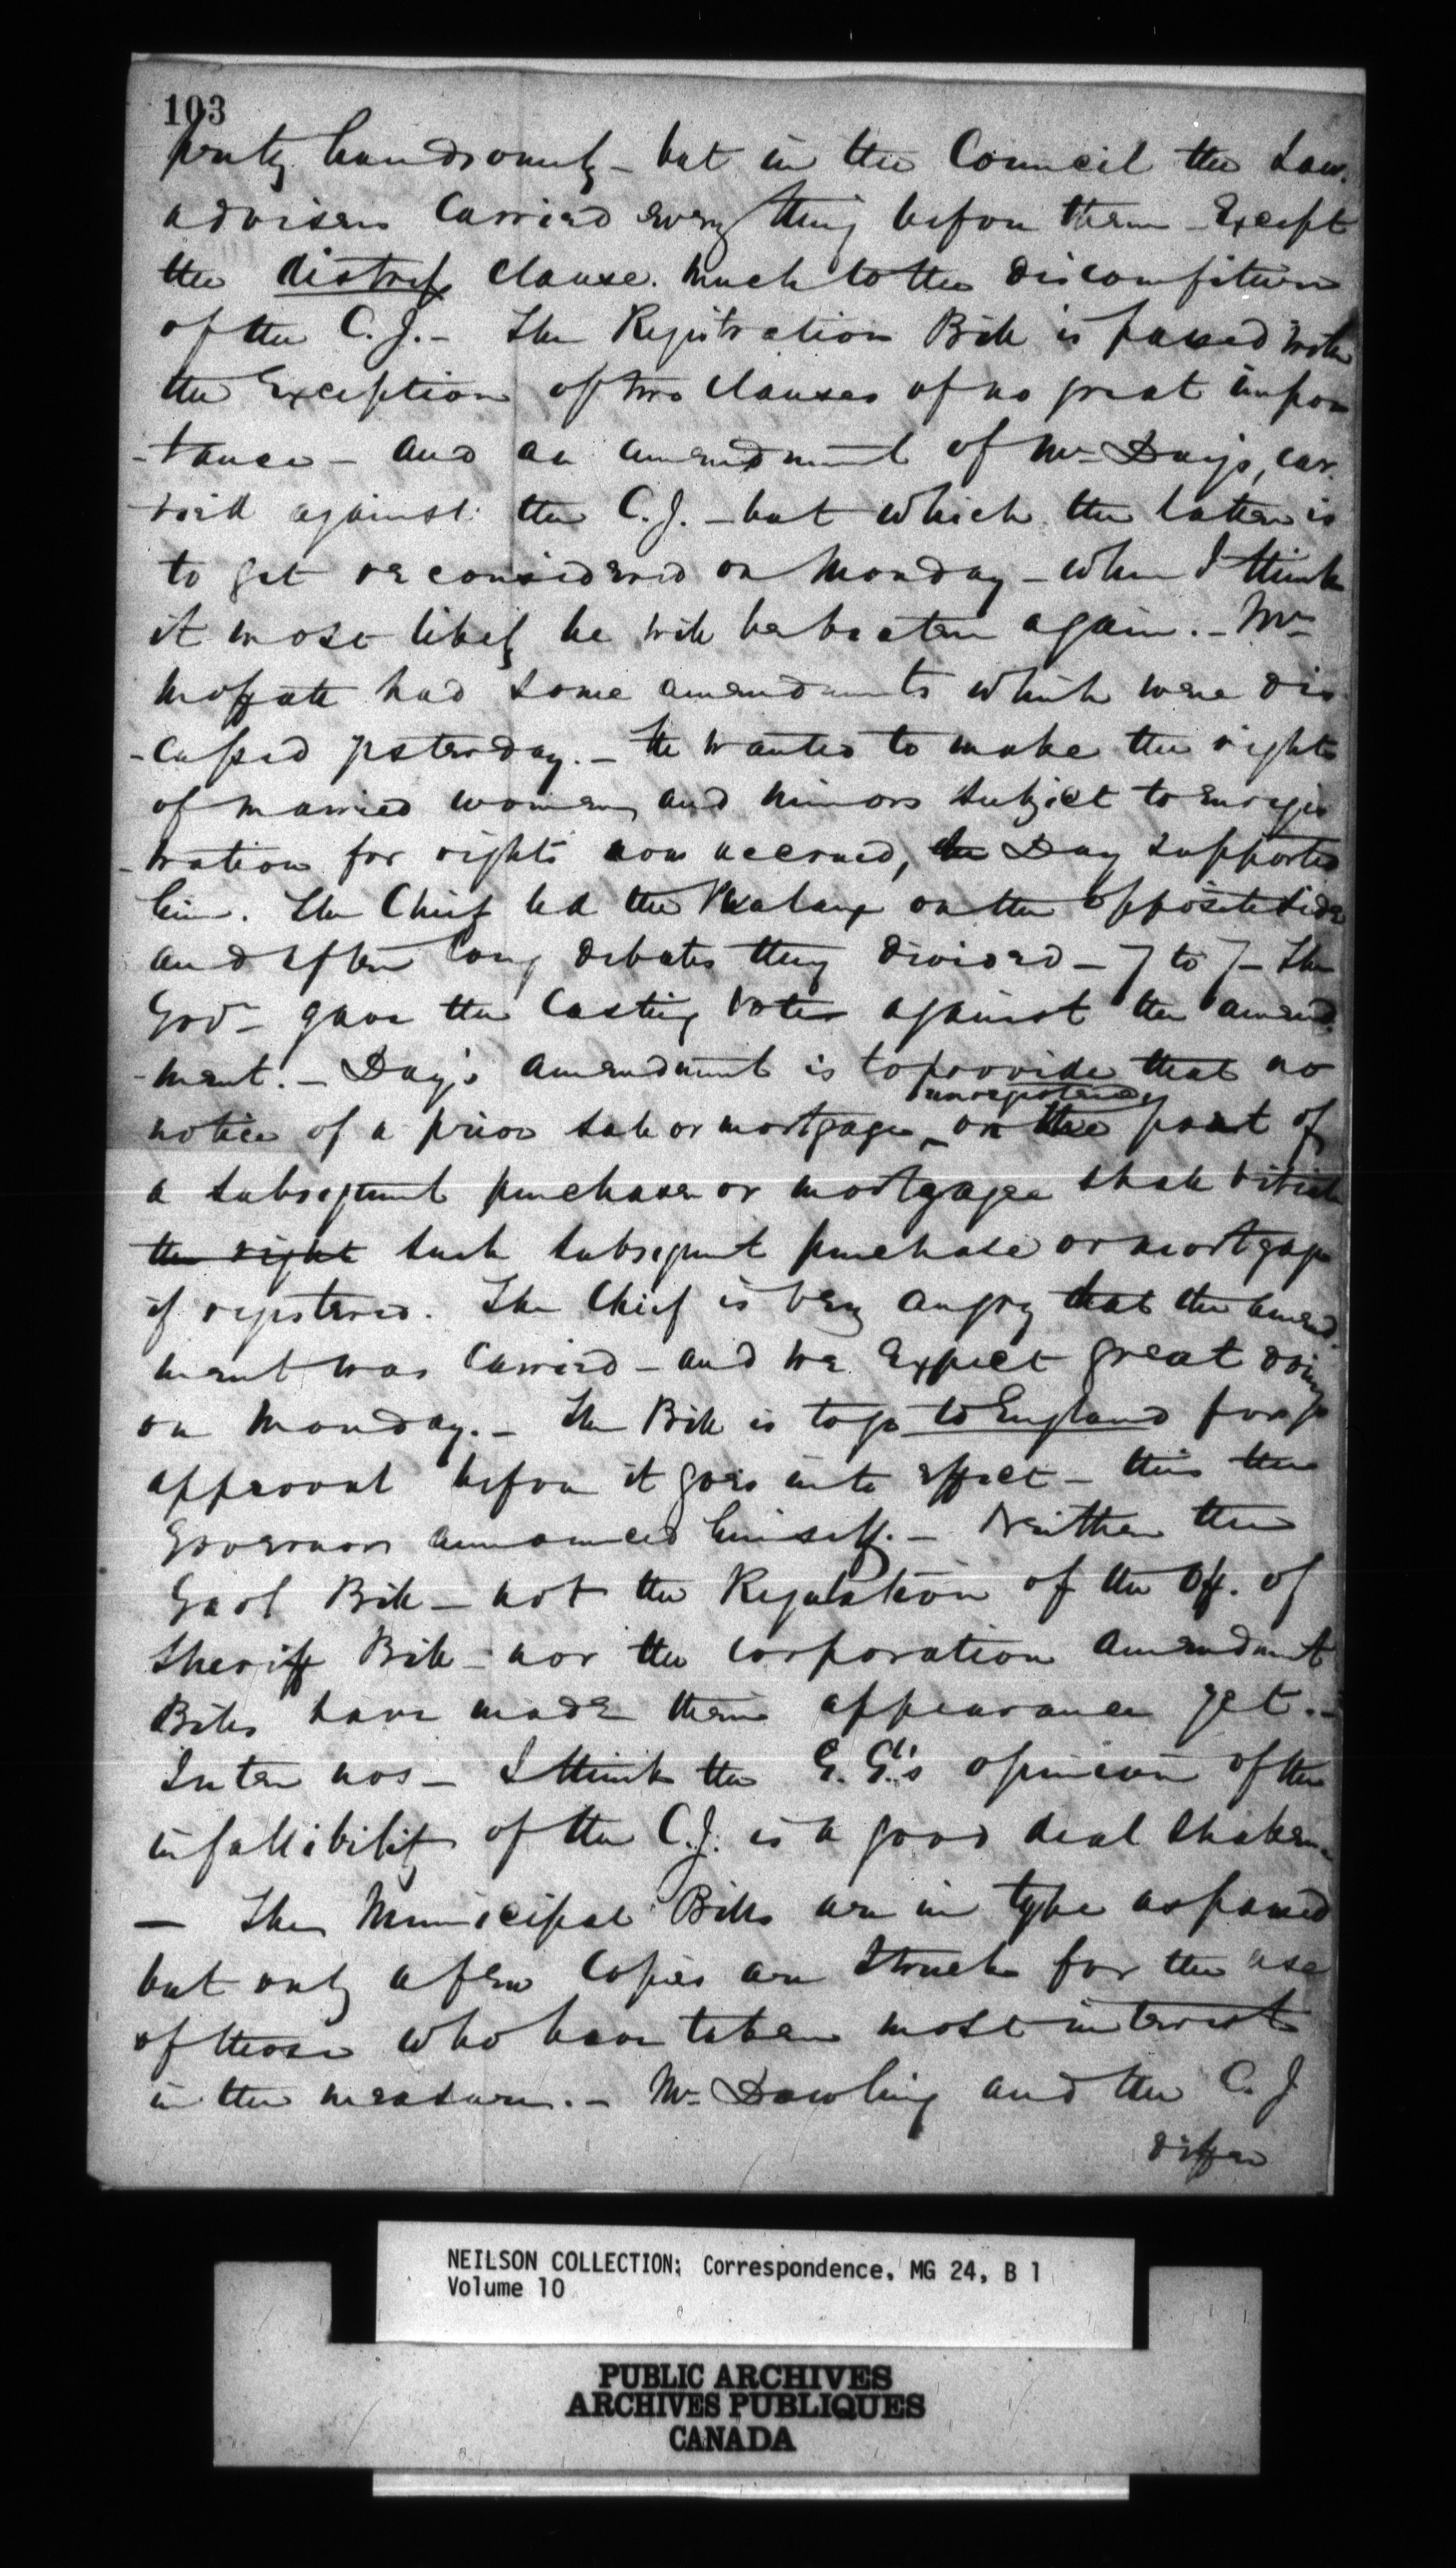 103
pretty handsomely - but in the Council the Law.
advisers carried every thing before them - Except
the distress clause. much to the discomfiture
of the C. J. - The Registration Bill is passed with
the Exception of two clauses of no great impor
-tance - and an amendment of Mr Day's, car.
ried against the C. J. - but which the latter is
to get reconsidered on Monday - when I think
it most likely he will be beaten again. - Mr
Moffatt had some amendments which were dis
-cussed yesterday. - He wanted to make the rights
of married women and minors subject to enregis
-tration for rights now accrued, Day supported
him. The Chief led the Phalanx on the opposite side
and after long debates they divided - 7 to 7 - The
Govr gave the casting vote against the amend.
-ment. - Day's amendment is to provide that no
unregistered
notice of a prior sale or mortgage on the part of
a subsequent purchaser or mortgagee shall vitiate
the right such subsequent purchase or mortgage
if registered. The Chief is very angry that the amend.
ment was carried - and we expect great doings
on Monday. - The Bill is to go to England for
approval before it goes into effect - this the
Governor announced himself. - Neither the
Gaol Bill - not the Regulation of the Off. of
Sheriff Bill - nor the corporation Amendment
Bills have made their appearance yet. -
Inter nos - I think the G. Gl's opinion of the
infallibility of the C.J. is a good deal shaken
- The Municipal Bills are in type as passed
but only a few copies are struck for the use
of those who have taken most interest
in the measure. - Mr Dowling and the C. J
differ
NEILSON COLLECTION: Correspondence, MG 24, B 1
Volume 10
PUBLIC ARCHIVES
ARCHIVES PUBLIQUES
CANADA